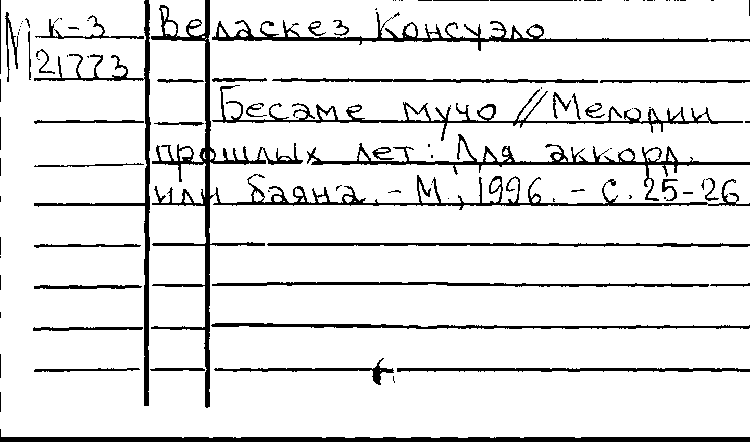 М к-3 Веласкез, Консуэло
21773
Бесаме мучо // Мелодии
прошлых лет: Для аккорд.
или баяна. - М., 1996. - с. 25-26